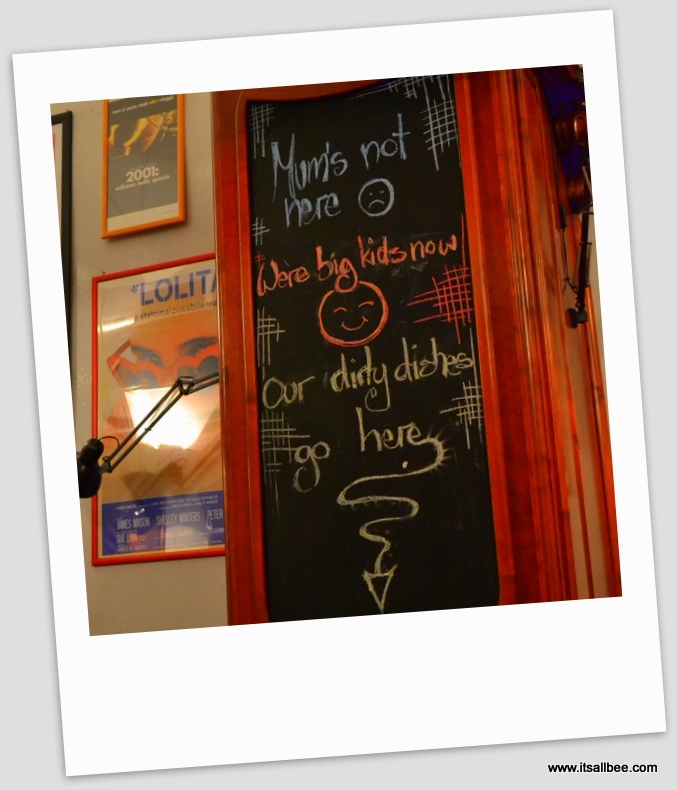 2001:
odissea nello spazio
LOLITA
Mum's not
here
We're big kids now
Our dirty dishes
go here
JAMES MASON SHELLEY WINTERS PETER
SUE LYON
www.itsallbee.com